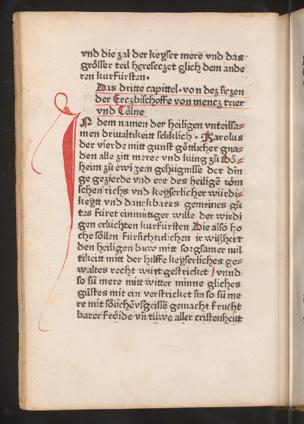 vnd die zal der keyser mere vnd das
grösser teil hereseczet glich dem ande
ren kurfürsten.
Das dritte capittel. von des siczen
der Erczbischoffe von mencz trier
vnd Cölne
IN dem namen der heiligen vnteilsa-
men driualtikeitt seliklich. Karolus
der vierde mitt gunst göttlicher gna-
den alle zitt merer vnd küng zu Bö-
heim zu ewi zem gehügnisse der din
ge gezierde vnd ere des heilige röm
schen richs vnd keyserlicher wirdi-
keytt vnd danckbares gemeines gu
tes füret einmütiger wille der wirdi
gen erluchten kurfürsten Die also ho
che söllen fürsichticlichen in wißheitt
den heiligen buw mitt sorgsamer mil
tikeitt mitt der hilffe keyserliches ge-
waltes recht wirt gestricket / vnnd
so sü mere mitt witter minne gliches
gunstes mitt ein verstricket sin so sü me
re mitt gemacht frucht
barer fröide vn ruwe aller cristenheitt